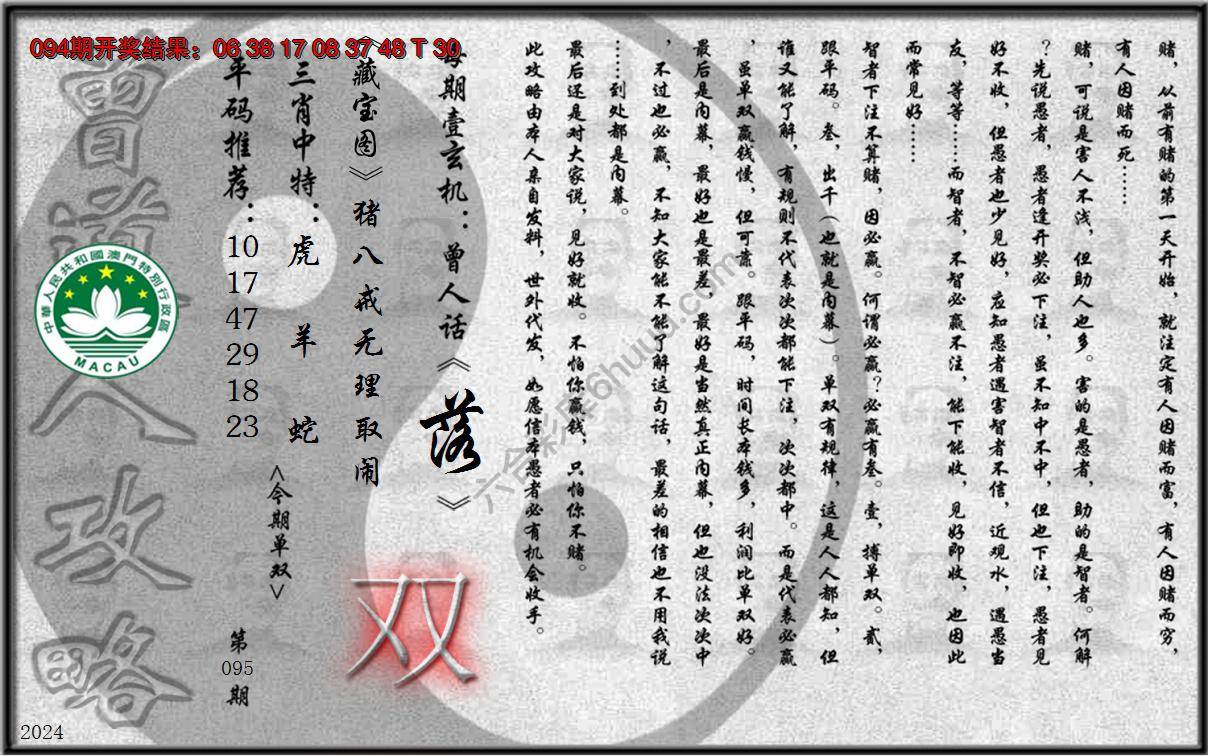 094期开奖结果：06 38 17 08 37 48 T 30
赌，从前有赌的第一天开始，就注定有人因赌而富，有人因赌而穷，
有人因赌而死……
赌，可说是害人不浅，但助人也多。害的是愚者，助的是智者。何解
？先说愚者，愚者逢开奖必下注，虽不知中不中，但也下注，愚者见
好不收，但愚者也少见好，应知愚者遇害智者不信，近观水，遇愚当
友，等等……而智者，不智必赢不注，能下能收，见好即收，也因此
而常见好……
智者下注不算赌，因必赢。何谓必赢？必赢有叁。壹，搏单双。贰，
跟平码。叁，出千（也就是内幕）。单双有规律，这是人人都知，但
谁又能了解，有规则不代表次次都能下注，次次都中。而是代表必赢
，虽单双赢钱慢，但可靠。跟平码，时间长本钱多，利润比单双好。
最后是内幕，最好也是最差，最好是当然真正内幕，但也没法次次中
，不过也必赢，不知大家能不能了解这句话，最差的相信也不用我说
……到处都是内幕。
最后还是对大家说，见好就收。不怕你赢钱，只怕你不赌。
此攻略由本人亲自发料，世外代发，如愿信本愚者必有机会收手。
每期壹玄机：曾人话《落》
《藏宝图》猪八戒无理取闹
双
三肖中特：虎 羊 蛇
<今期单双>
平码推荐：10 17 47 29 18 23
第
095
期
曾道人攻略
中華人民共和國澳門特別行政區
MACAU
2024